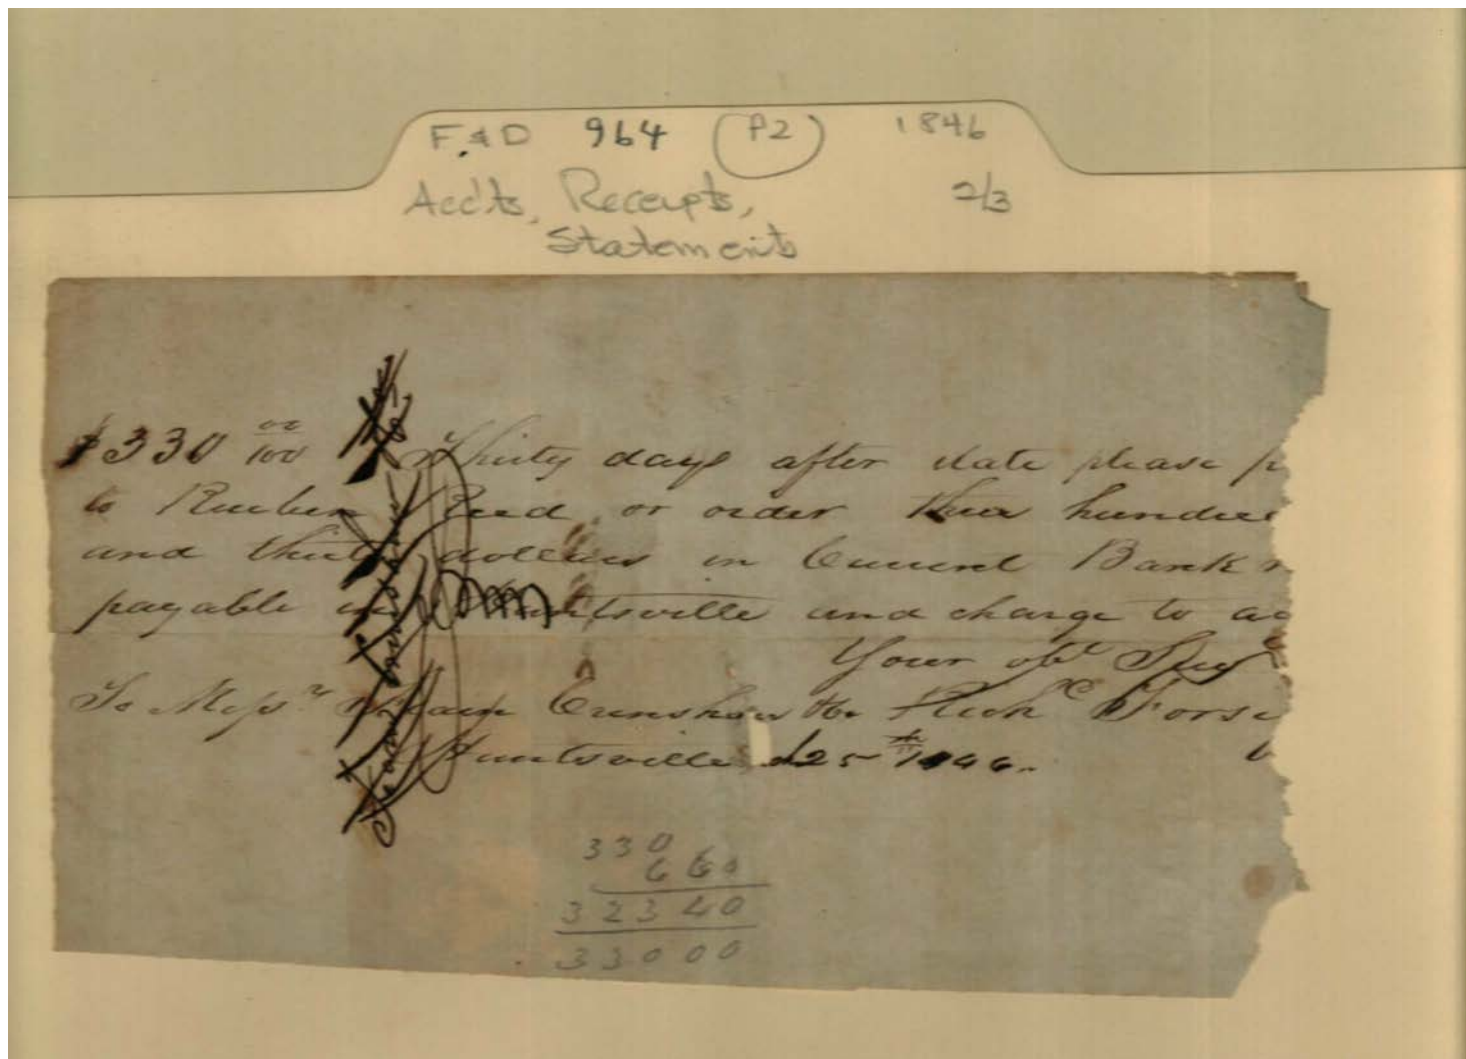 F&D 964 (P2) 1846
Acc'ts, Receipts, 2/3
Statements
$330 00/100 Thirty days after date please p
to Reuben Reed or order Three hundred
and thirty dollars in Current Bank
payable in Huntsville and charge to ac
Your obt
To Messrs Crenshaw & Co
Huntsville 25th 1846.
330
660
32340
33000